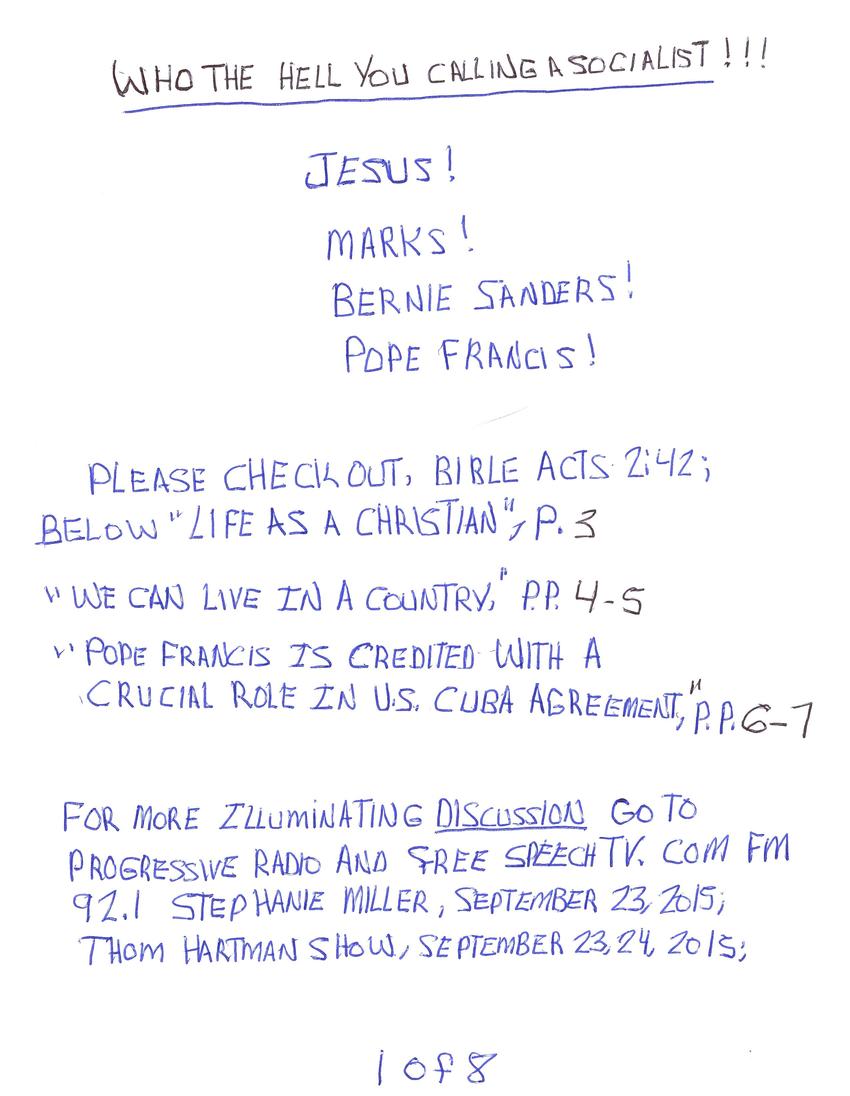 WHO THE HELL YOU CALLING A SOCIALIST!!!
JESUS!
MARKS!
BERNIE SANDERS!
POPE FRANCIS!
PLEASE CHECK OUT, BIBLE ACTS 2:42;
BELOW "LIFE AS A CHRISTIAN", P. 3
"WE CAN LIVE IN A COUNTRY," P.P. 4-5
"POPE FRANCIS IS CREDITED WITH A
CRUCIAL ROLE IN U.S. CUBA AGREEMENT," P.P. 6-7
FOR MORE ILLUMINATING DISCUSSION GO TO
PROGRESSIVE RADIO AND FREE SPEECHTV. COM FM
92.1 STEPHANIE MILLER, SEPTEMBER 23, 2015;
THOM HARTMAN SHOW, SEPTEMBER 23, 24, 2015;
1 of 8